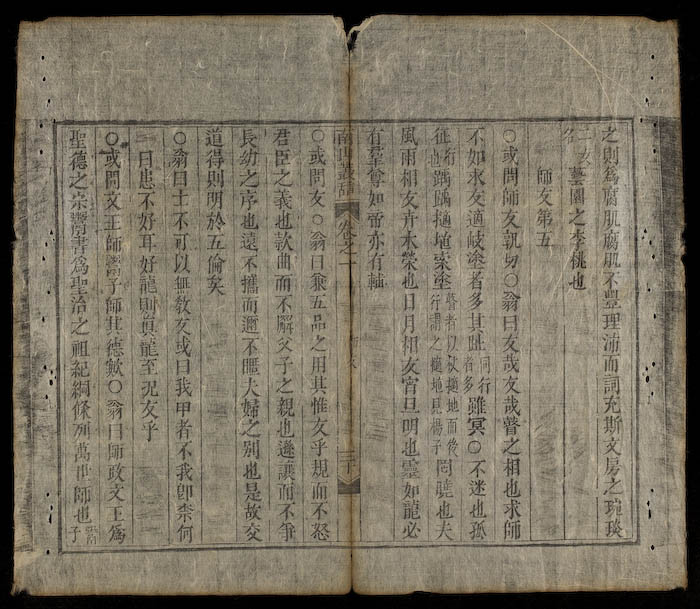 之則為腐肌腐肌不豐理沛而詞充斯文房之琬琰
藝圃之李桃也
師友第五
○或問師友孰切○翁曰友哉友哉瞽之相也求師
不如求友適岐塗者多其趾同行者多雖冥○不迷也孤
征踽踽擿埴索塗瞽者以杖擿地而後行謂之擿地見楊子罔驍也夫
風雨相友卉木榮也日月相友宵旦明也靈如龍必
有羣尊如帝亦有輔
○或問友○翁曰兼五品之用其惟友乎規而不怒
君臣之義也款曲而不懈父子之親也遜讓而不爭
長幼之序也遠不攜而邇不暱夫婦之別也是故交
道得則明於五倫矣
○翁曰士不可以無敎友或曰我甲者不我卽柰何
曰患不好耳好龍則真龍至況友乎
○或問文王師鬻子師其德歟○翁曰師政文王為
聖德之宗鬻書為聖治之祖紀綱條列萬世師也
卷之一